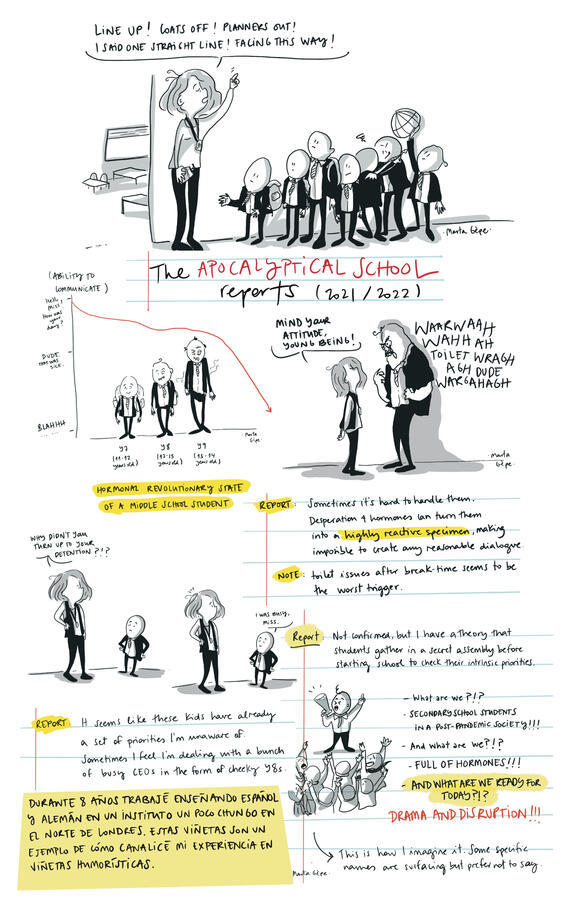 LINE UP! COATS OFF! PLANNERS OUT!
I SAID ONE STRAIGHT LINE! FACING THIS WAY!
Marta Gepe.
The APOCALYPTICAL SCHOOL
reports (2021/2022)
(ABILITY TO
COMMUNICATE)
Hello
Miss!
How was
your
day?
DUDE.
THAT WAS
SICK.
BLAHHH
Y7
(11-12
years old)
Y8
(12-13
years old)
Y9
(13-14
years old)
Marta
Gepe.
HORMONAL REVOLUTIONARY STATE
OF A MIDDLE SCHOOL STUDENT
MIND YOUR
ATTITUDE,
YOUNG BEING!
WAARWAAH
WAHH AH
TOILET WRAGH
AGH DUDE
WARGAHAGH
Marta
Gepe.
REPORT: Sometimes it's hard to handle them.
Desperation & hormones can turn them
into a highly reactive specimen, making
imposible to create any reasonable dialogue.
NOTE: toilet issues after break-time seems to be
the worst trigger.
WHY DIDN'T YOU
TURN UP TO YOUR
DETENTION?!?
I WAS BUSY,
MISS.
REPORT It seems like these kids have already
a set of priorities I'm unaware of
Sometimes I feel I'm dealing with a bunch
of busy CEOs in the form of cheeky Y8s.
Report Not confirmed, but I have a theory that
students gather in a secret assembly before
starting school to check their intrinsic priorities.
- What are we?!?
- SECONDARY SCHOOL STUDENTS
IN A POST-PANDEMIC SOCIETY!!!
- And what are we?!?
- FULL OF HORMONES!!!
- AND WHAT ARE WE READY FOR
TODAY?!?
DRAMA AND DISRUPTION!!!
This is how I imagine it. Some specific
names are surfacing but prefer not to say.
Marta Gepe.
DURANTE 8 AÑOS TRABAJÉ ENSEÑANDO ESPAÑOL
Y ALEMÁN EN UN INSTITUTO UN POCO CHUNGO EN
EL NORTE DE LONDRES. ESTAS VIÑETAS SON UN
EJEMPLO DE CÓMO CANALICÉ MI EXPERIENCIA EN
VIÑETAS HUMORÍSTICAS.